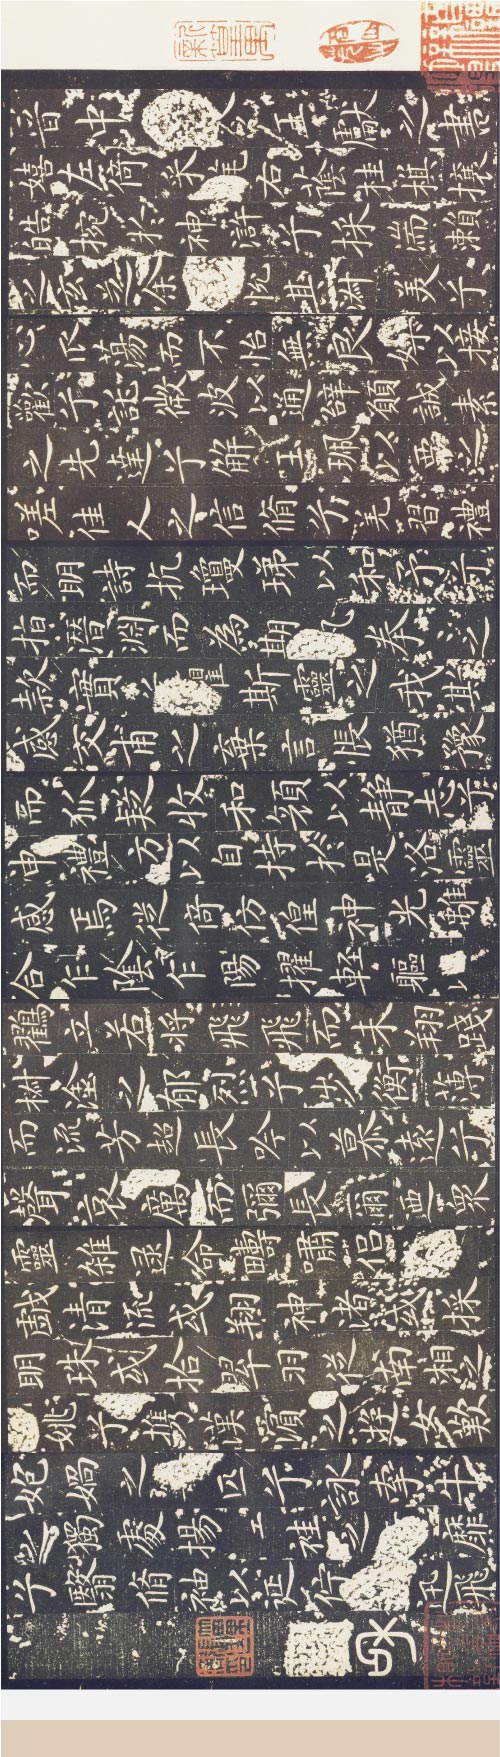 晉中令王獻之書
嬉左倚采旄右蔭桂旗攘
皓捥於神滸兮採湍瀨
之玄芝余悅其淑美兮
心振蕩而不怡無良媒以接
歡兮託微波以通辭願誠素
之先達兮解玉珮以要之
嗟佳人之信脩兮羌習禮
而明詩抗瓊珶以和予兮
指潛淵而為期奉之
款實懼斯靈之我欺
感交甫之棄言悵猶豫
而狐疑收和顏以靜志兮
申禮防以自持於是洛靈
感焉徙倚彷徨神光離
合乍陰乍陽擢輕軀
鶴立若將飛飛而未翔踐
椒塗之郁烈兮步衡薄
而流芳超長吟以慕遠兮
聲哀厲而彌長爾迺眾
靈雜遝命疇嘯侶
戲清流或翔神渚或採
明珠或拾翠羽從南湘之
姚兮攜漢濱之游女歎
炮媧之匹兮詠牽牛
之獨處揚袿之靡
兮翳脩袖以延佇體飛